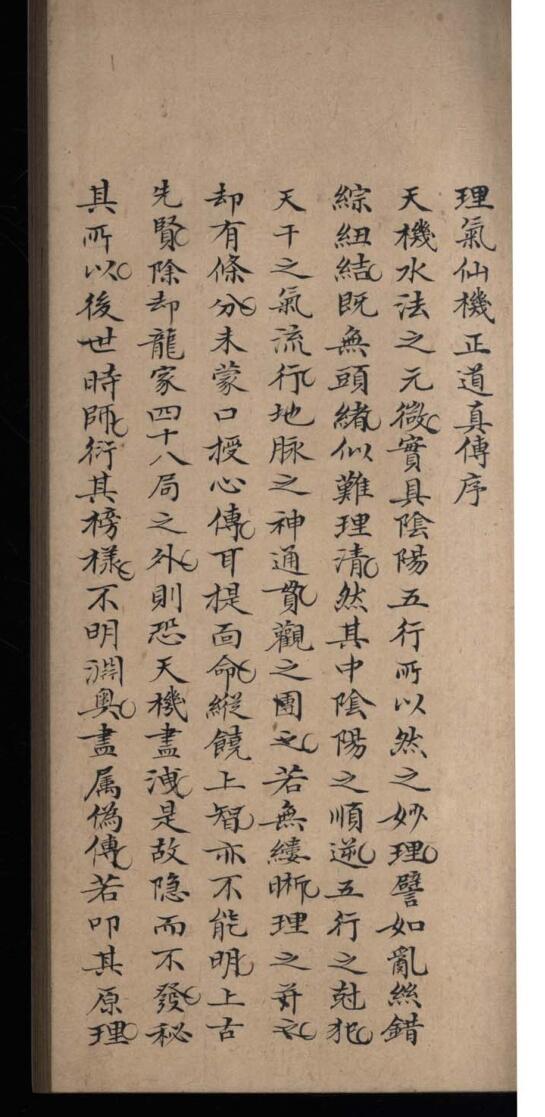 理氣仙機正道真傳序
天機水法之元微實具陰陽五行所以然之妙理譬如亂絲錯
綜紐結既無頭緒似難理清然其中陰陽之順逆五行之尅犯
天干之氣流行地脉之神通貫觀之團々若無縷晰理之井々
却有條分未蒙口授心傳耳提面命縱饒上智亦不能明上古
先賢除却龍家四十八局之外則恐天機盡洩是故隐而不發秘
其所以後世時師衍其榜樣不明淵奥盡属偽傳若叩其原理